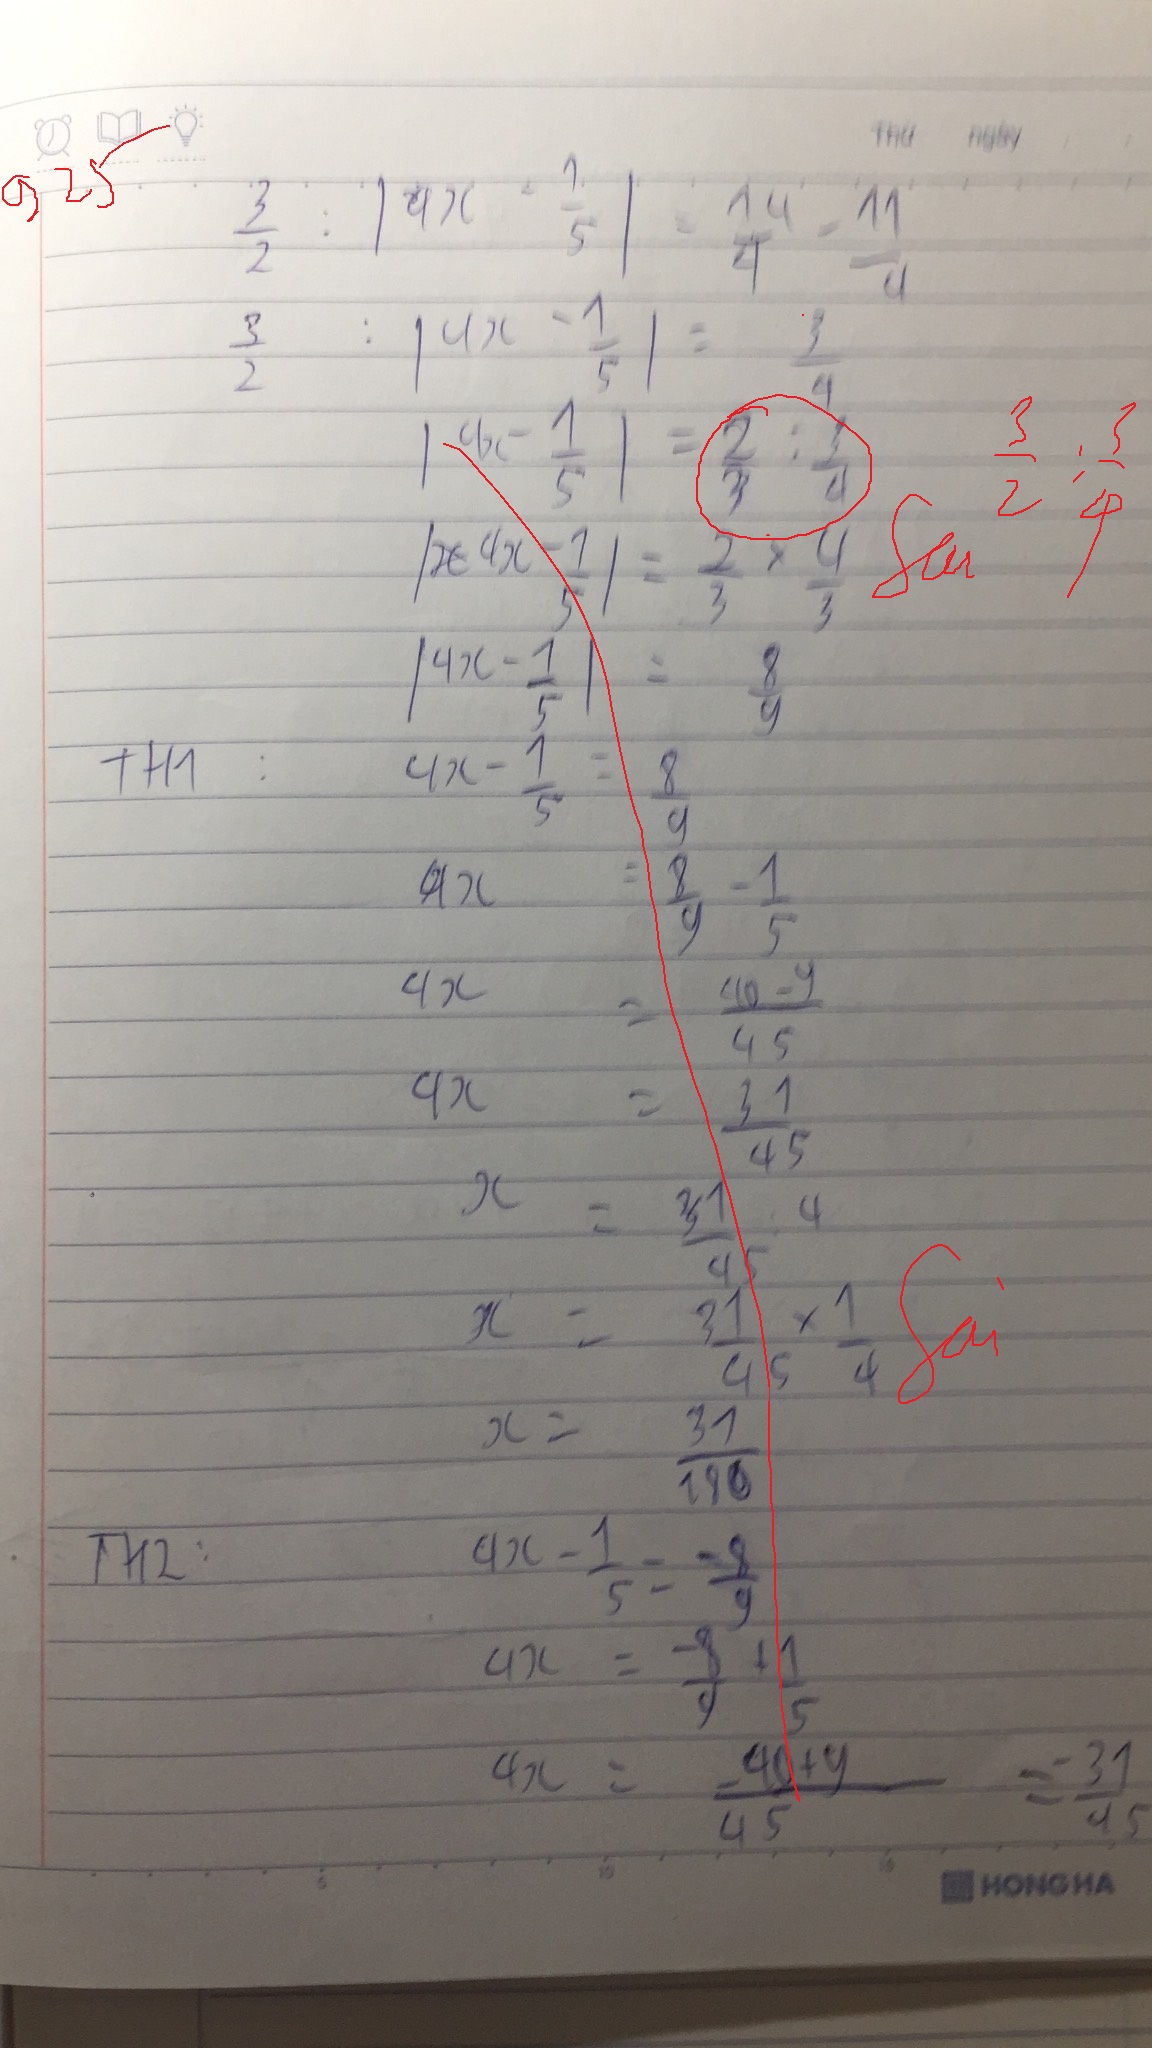 Thứ Ngày
0,25
3/2 : |4x - 1/5| = 14/4 - 11/4
3/2 : |4x - 1/5| = 3/4
|4x - 1/5| = 2/3 : 3/4 3/2 : 3/4
|4x - 1/5| = 2/3 × 4/3 Sai
|4x - 1/5| = 8/9
TH1 : 4x - 1/5 = 8/9
4x = 8/9 - 1/5
4x = 40-9/45
4x = 31/45
x = 31/45 : 4
x = 31/45 × 1/4 Sai
x = 31/180
TH2 : 4x - 1/5 = -8/9
4x = -8/9 + 1/5
4x = -40+9/45 = -31/45
5 10 15
HONG HA